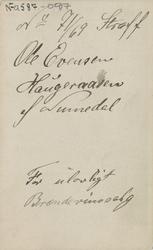 No 587-0597
No 7/69 Straff
Ole Evensen
Haugeraasen
af Numedal
For ulovligt
Brændevinssalg